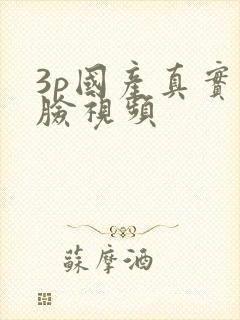 3p國產真實
臉視頻
蘇摩酒